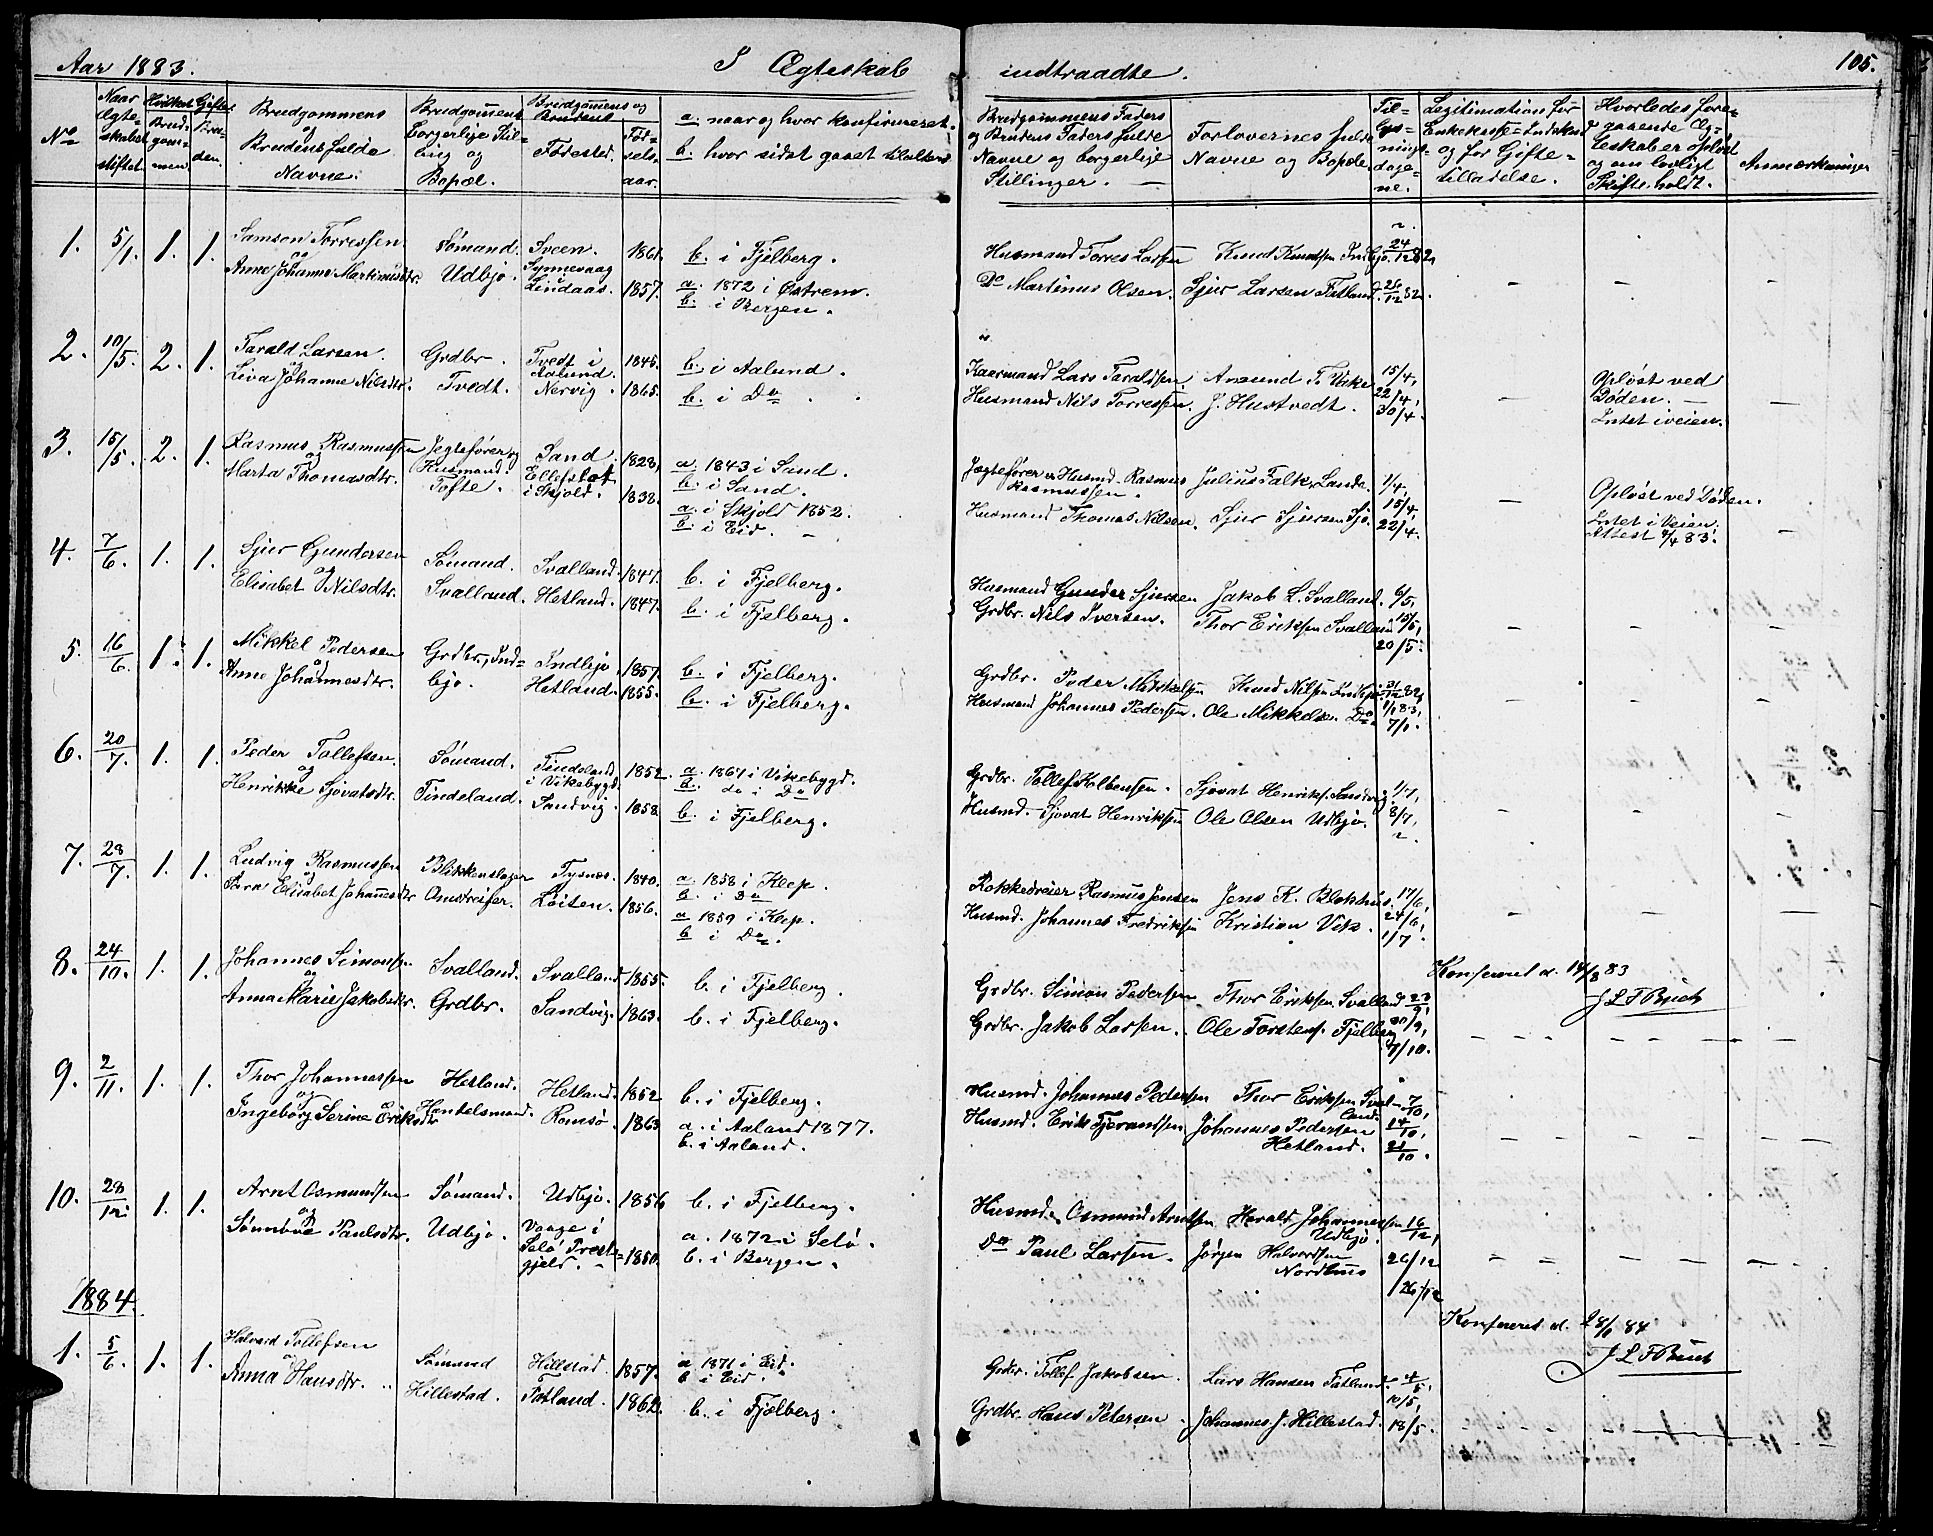 Aar 1883.
I Ægteskab indtraadte.
105.
No
Naar Ægteskabet stiftet.
Hvilket Gifte
Brudgommen.
Bruden.
Brudgommens og Brudens fulde Navne.
Brudgommens borgerlige Stilling og Bopæl.
Brudgommens og Brudens
Fødested.
Fødselsaar.
a. naar og hvor konfirmeret.
b. hvor sidst gaaet til alters.
Brudgommens Faders og Brudens Faders fulde Navne og borgerlige Stillinger.
Forlovernes fulde Navne og Bopæle.
Tillysningsdagene.
Legitimation for Enkekasse-Indskud og for Giftetilladelse.
Hvorledes foregaaende Ægteskab er opløst og om lovligt Skifte holdt.
Anmærkninger
1. 5/1. 1. 1. Samson Torressen og Anne Johanne Martinusdtr. Sømand. Udbjo. Sveen. 1861. b. i Fjelberg.
Synnevaag i Lindaas. 1857. a. 1872 i Østrem. b. i Bergen.
Husmand Torres Larsen Knud Knudsen Indbjo. 24/12 82,
Do Martinus Olsen. Sjur Larsen Fatland. 26/12 82.
2. 10/5. 2. 1. Tarald Larsen og Liva Johanne Nilsdtr. Grdbr. Tvedt. Tvedt i Aalund. 1845. b. i Aalund.
Nervig. 1865. b. i Do
Kaarmand Lars Taraldsen. Amund T. Vike 15/4,
Husmand Nils Torressen. J. Hustvedt. 22/4, 30/4.
Opløst ved Døden. Intet i veien.
3. 15/5. 2. 1. Rasmus Rasmussen og Marta Thomasdtr. Jægtefører og Husmand. Tofte. Sand. 1828, a. 1843 i Sand. b. i Sand.
i Skjold. 1838. a. i Skjold 1852. b. i Eid.
Jægtefører og Husmd. Rasmus Rasmussen. Julius Falk, Sande. 1/4,
Husmand Thomas Nilsen. Sjur Sjursen 15/4, 22/4.
Opløst ved Døden. Intet i Veien. Attest 83.
4. 7/6. 1. 1. Sjur Gundersen og Elisabet Nilsdtr. Sømand. Svalland. Svalland. 1847. b. i Fjelberg.
Hetland. 1847. b. i Fjelberg.
Husmand Gunder Sjursen Jakob L. Svalland. 6/5,
Grdbr. Nils Iversen. Thor Eriksen Svalland 15/5, 20/5.
5. 16/6. 1. 1. Mikkel Pedersen og Anne Johannesdtr. Grdbr., Indbjo. Indbjo 1857. b. i Fjelberg.
Hetland. 1855. b. i Fjelberg.
Grdbr. Peder Mikkelsen Knud Nilsen Indbjo. 31/12 82,
Husmand Johannes Pedersen. Ole Mikkelsen Do 1/1 83, 7/1.
6. 20/7. 1. 1. Peder Tollefsen og Henrikke Sjovatsdtr. Sømand. Tindeland. Tindeland i Vikebygd 1852. a. 1867 i Vikebygd. b. do i Do
Sandvig. 1858. b. i Fjelberg.
Grdbr. Tollef Kolbensen. Sjovat Henriks. Sandvig. 1/7,
Husmd. Sjovat Henriksen Ole Olsen Udbjo. 8/7,
7. 28/7. 1. 1. Ludvig Rasmussen og Sara Elisabet Johannesdtr Blikkenslager Omstreifer. Tysnes. 1840. a. 1858 i Klep. b. i Do
Løiten. 1856. a. 1859 i Klep. b. i Do.
Rokkedreier Rasmus Jensen Jens K. Blokhus. 17/6,
Husmd. Johannes Fredriksen Kristian Vik. 24/6, 1/7.
8. 24/10. 1. 1. Johannes Simonsen og Anna Marie Jakobsdtr Svalland. Grdbr. Svalland 1855. b. i Fjelberg.
Sandvig. 1863. b. i Fjelberg.
Grdbr. Simon Pedersen Thor Eriksen Svalland 23/9,
Grdbr. Jakob Larsen. Ole Torstens. Fjelberg 30/9, 7/10.
Konfereret d. 14/8 83
J L F Buch
9. 2/11. 1. 1. Thor Johannessen og Ingeborg Serine Eriksdtr Hetland. Handelsmand. Hetland. 1852 b. i Fjelberg.
Romsø. 1863 a. i Aaland 1877. b. i Aaland.
Husmd. Johannes Pedersen Thor Eriksen Svalland. 7/10,
Husmd. Erik Tjerandsen Johannes Pedersen Hetland. 14/10, 21/10.
10. 28/12. 1. 1. Arnt Osmundsen og Sønneve Paulsdtr. Sømand. Udbjo. Udbjo. 1856 b. i Fjelberg.
Vaage i Selø Prestegjeld. 1850. a. 1872 i Selø. b. i Bergen.
Husmd. Osmund Arntsen Herald Johannessen Udbjo. 16/12,
Do Paul Larsen. Jørgen Halvordsen Nordhuus 26/12 26/12
1884.
Konfereret d. 28/1 84
J L F Buch
1. 5/6. 1. 1. Halvard Tollefsen og Anna Hansdtr. Sømand Hillestad. Hillestad. 1857. a. 1871 i Eid. b. i Eid.
Fatland. 1862. b. i Fjelberg.
Grdbr. Tollef Jakobsen. Lars Hansen Fatland. 4/5,
Grdbr. Hans Petersen. Johannes J. Hillestad. 10/5, 18/5.